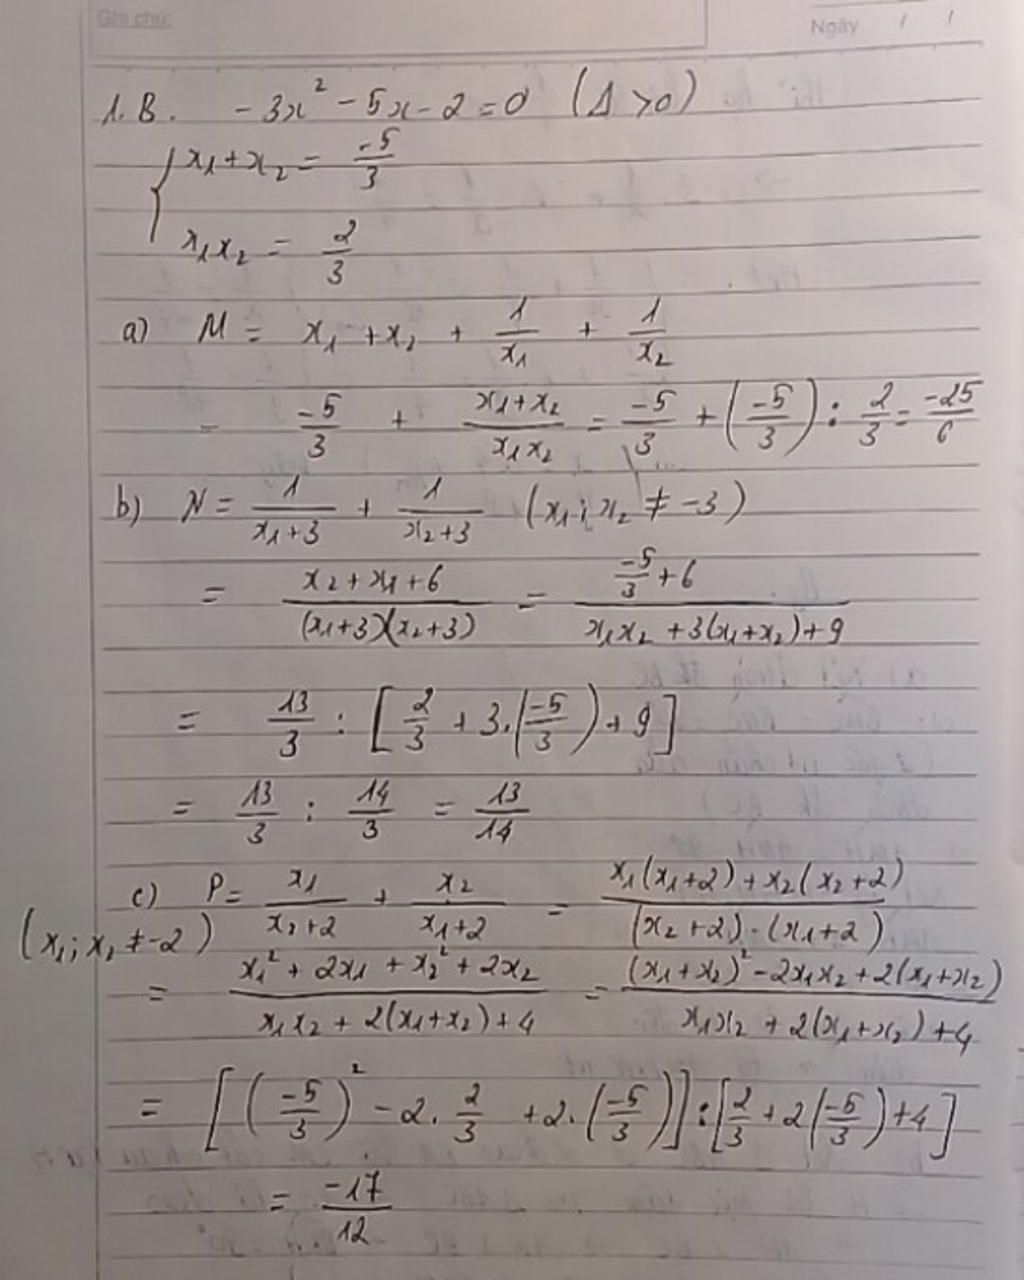 Ghi chú:
Ngày / /
1.B. -3x² - 5x - 2 = 0 (Δ > 0)
x₁ + x₂ = -5/3
x₁x₂ = 2/3
a) M = x₁ + x₂ + 1/x₁ + 1/x₂
= -5/3 + (x₁+x₂)/(x₁x₂) = -5/3 + (-5/3) : 2/3 = -25/6
b) N = 1/(x₁+3) + 1/(x₂+3) (x₁; x₂ ≠ -3)
= (x₂+x₁+6)/((x₁+3)(x₂+3)) = (-5/3+6)/(x₁x₂+3(x₁+x₂)+9)
= 13/3 : [2/3 + 3.(-5/3) + 9]
= 13/3 : 14/3 = 13/14
c) P = x₁/(x₂+2) + x₂/(x₁+2) = (x₁(x₁+2)+x₂(x₂+2))/((x₂+2).(x₁+2))
(x₁; x₂ ≠ -2)
= (x₁²+2x₁+x₂²+2x₂)/(x₁x₂+2(x₁+x₂)+4) = ((x₁+x₂)²-2x₁x₂+2(x₁+x₂))/(x₁x₂+2(x₁+x₂)+4)
= [(-5/3)² - 2. 2/3 + 2.(-5/3)] : [2/3 + 2(-5/3) + 4]
= -17/12